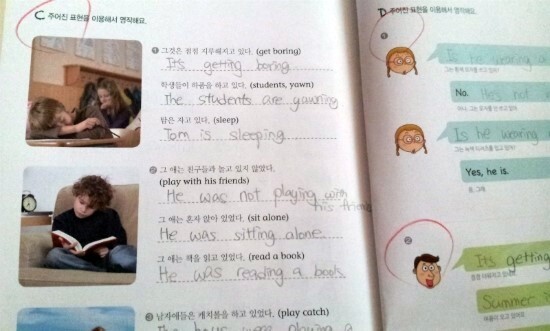 C 주어진 표현을 이용해서 영작해요.
1 그것은 점점 지루해지고 있다. (get boring)
Its getting boring.
학생들이 하품을 하고 있다. (students, yawn)
The students are yawning
탐은 자고 있다. (sleep)
Tom is sleeping.
2 그 애는 친구들과 놀고 있지 않았다.
(play with his friends)
He was not playing with
his friends
그 애는 혼자 앉아 있었다. (sit alone)
He was sitting alone.
그 애는 책을 읽고 있었다. (read a book)
He was reading a book
3 남자애들은 캐치볼을 하고 있었다. (play catch)
The boys were playing a
D 주어진 표현을 이용해서 영작해요.
1
Is he wearing a
No. He's not
Is he wearing
Yes, he is.
응, 그래.
2
Its getting
Summer